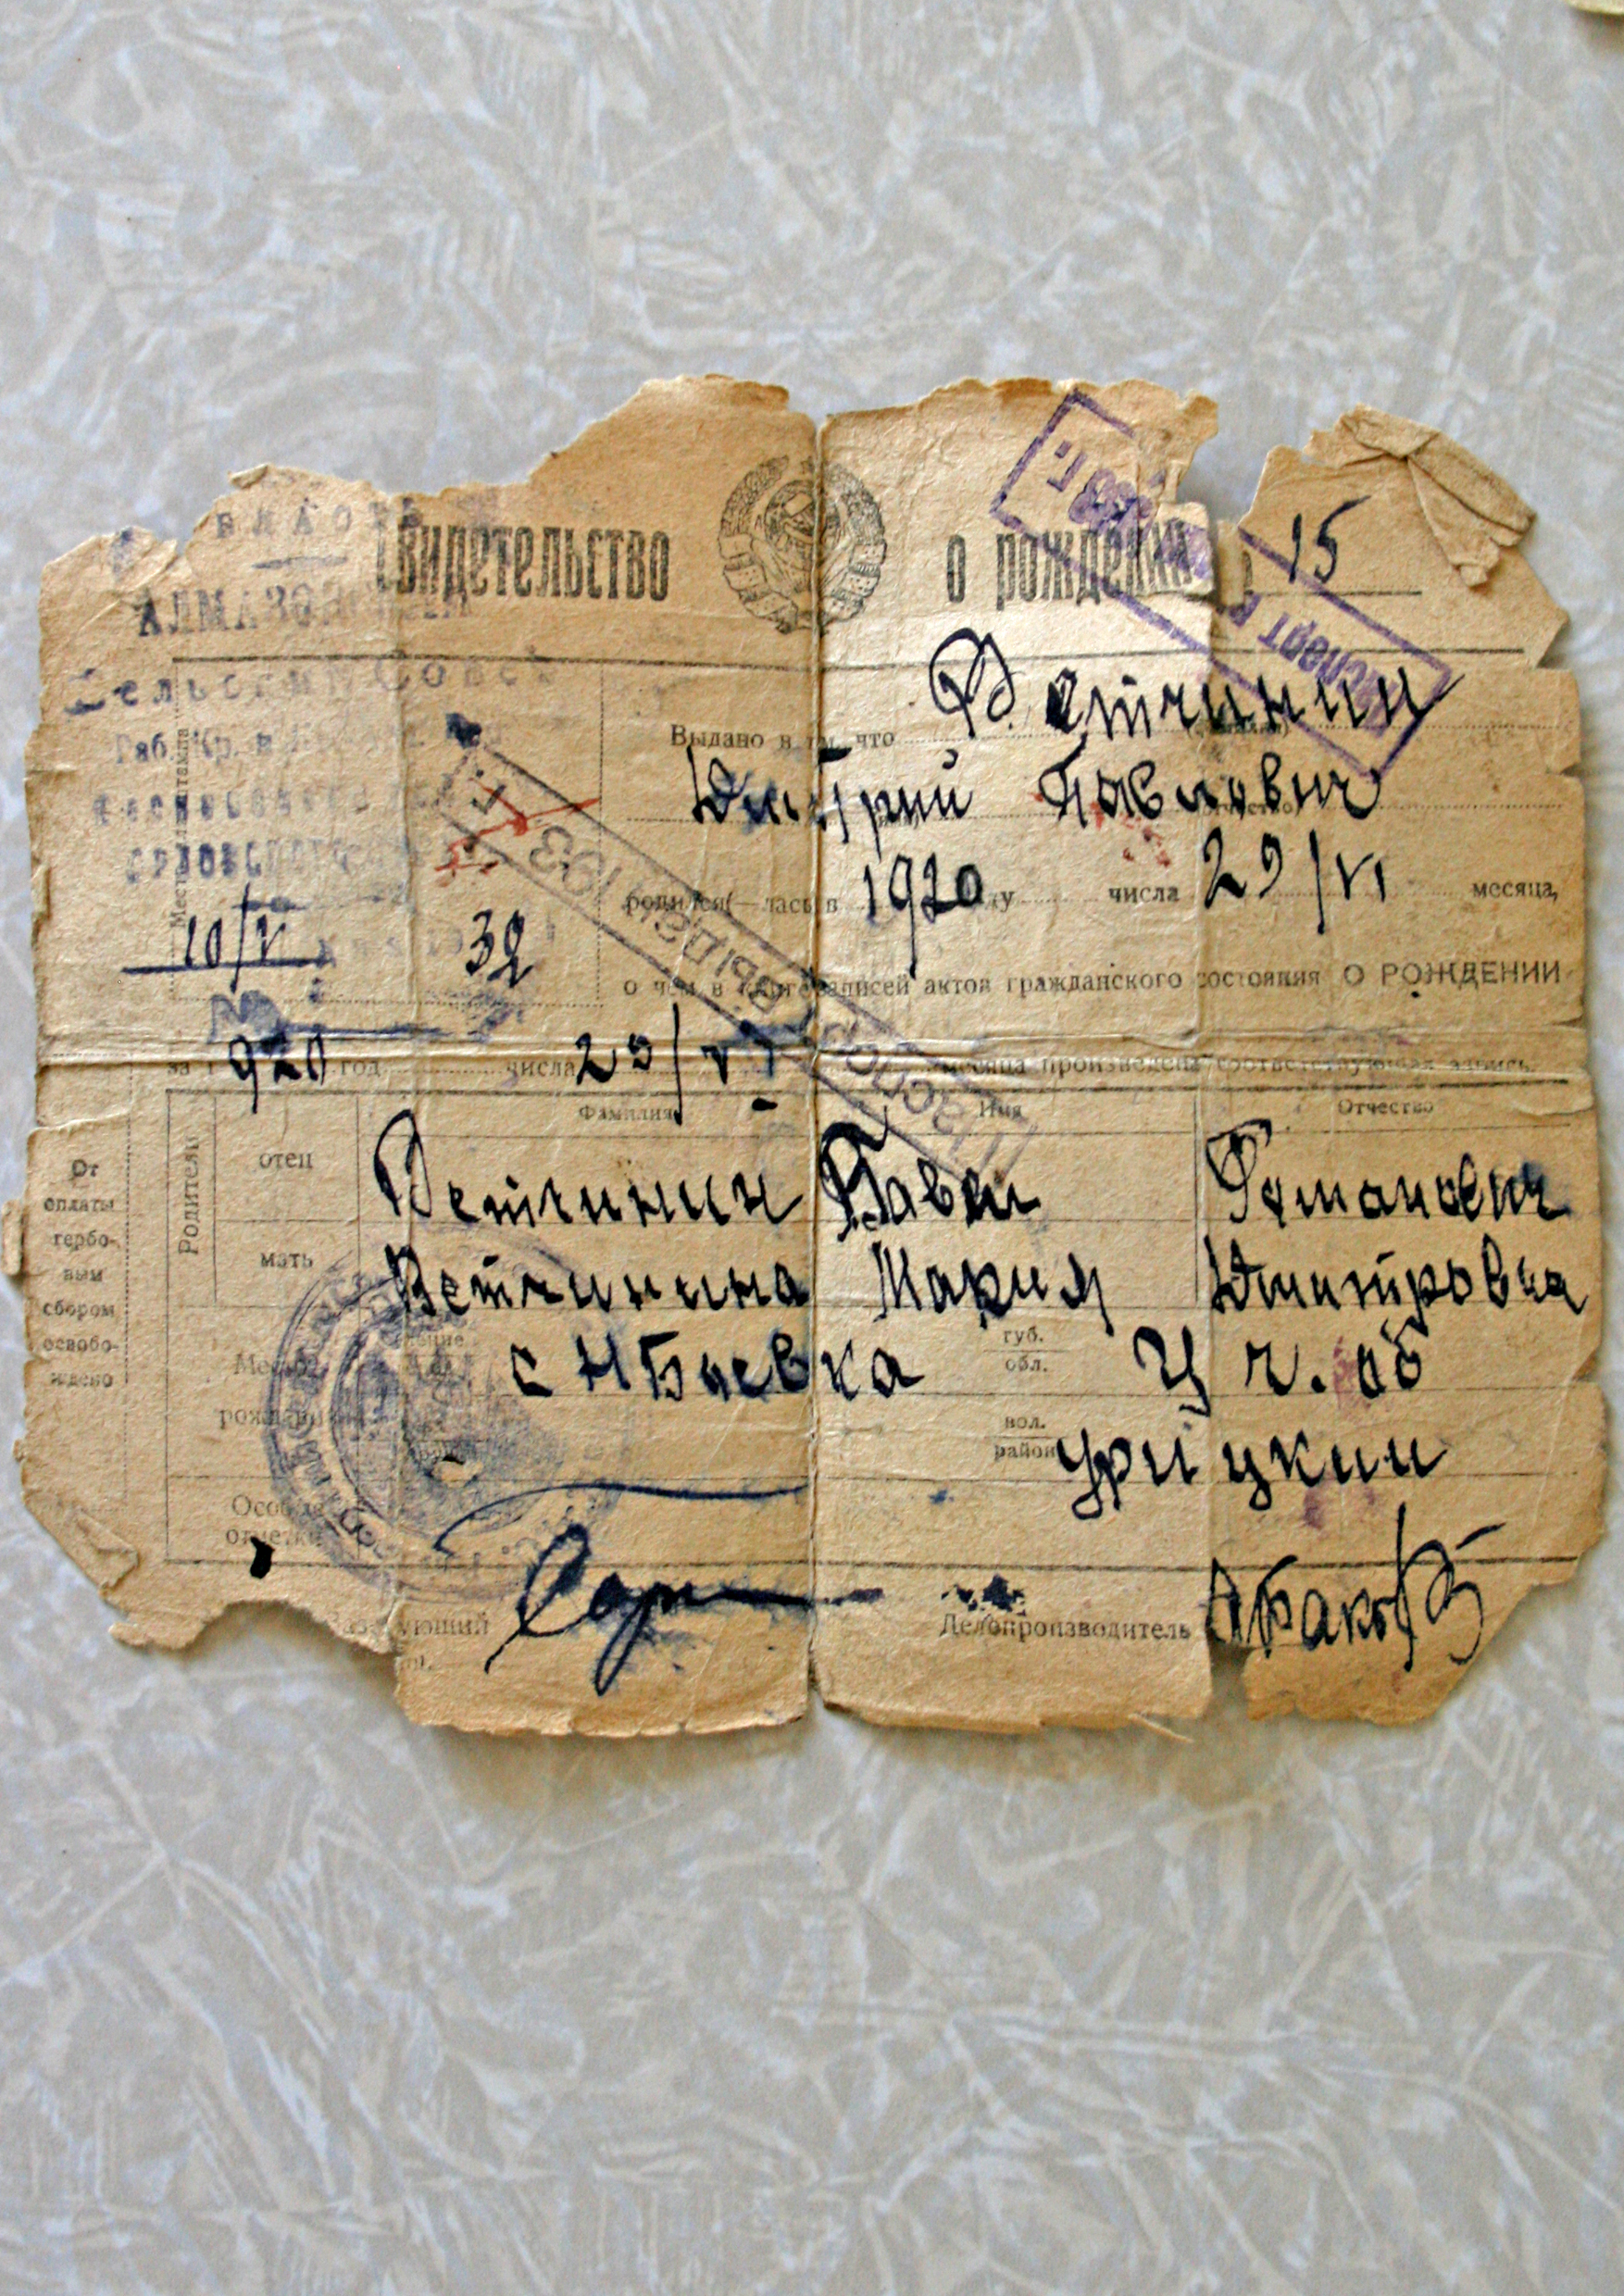 Свидетельство о рождении 15
АЛМАЗОВ
Сельский Сов
Раб. Кр. и
10/V 32
Выдано в том, что Ветчинин
Дмитрий Павлович
родился(—лась) в 1920 году числа 29/VI месяца,
о чем в книге записей актов гражданского состояния О РОЖДЕНИИ
за 1920 год числа 29/VI месяца произведена соответствующая запись.
Фамилия Имя Отчество
Родители
отец Ветчинин Павел Романович
мать Ветчинина Мария Дмитровна
Место рождения с Н Баевка губ. обл. Ц ч. об
вол. район Урицкий
Особые отметки
От оплаты гербо-
вым
сбором
освобо-
ждено
Заведующий
Делопроизводитель
Паспорт выдан 193 г.
Паспорт г.